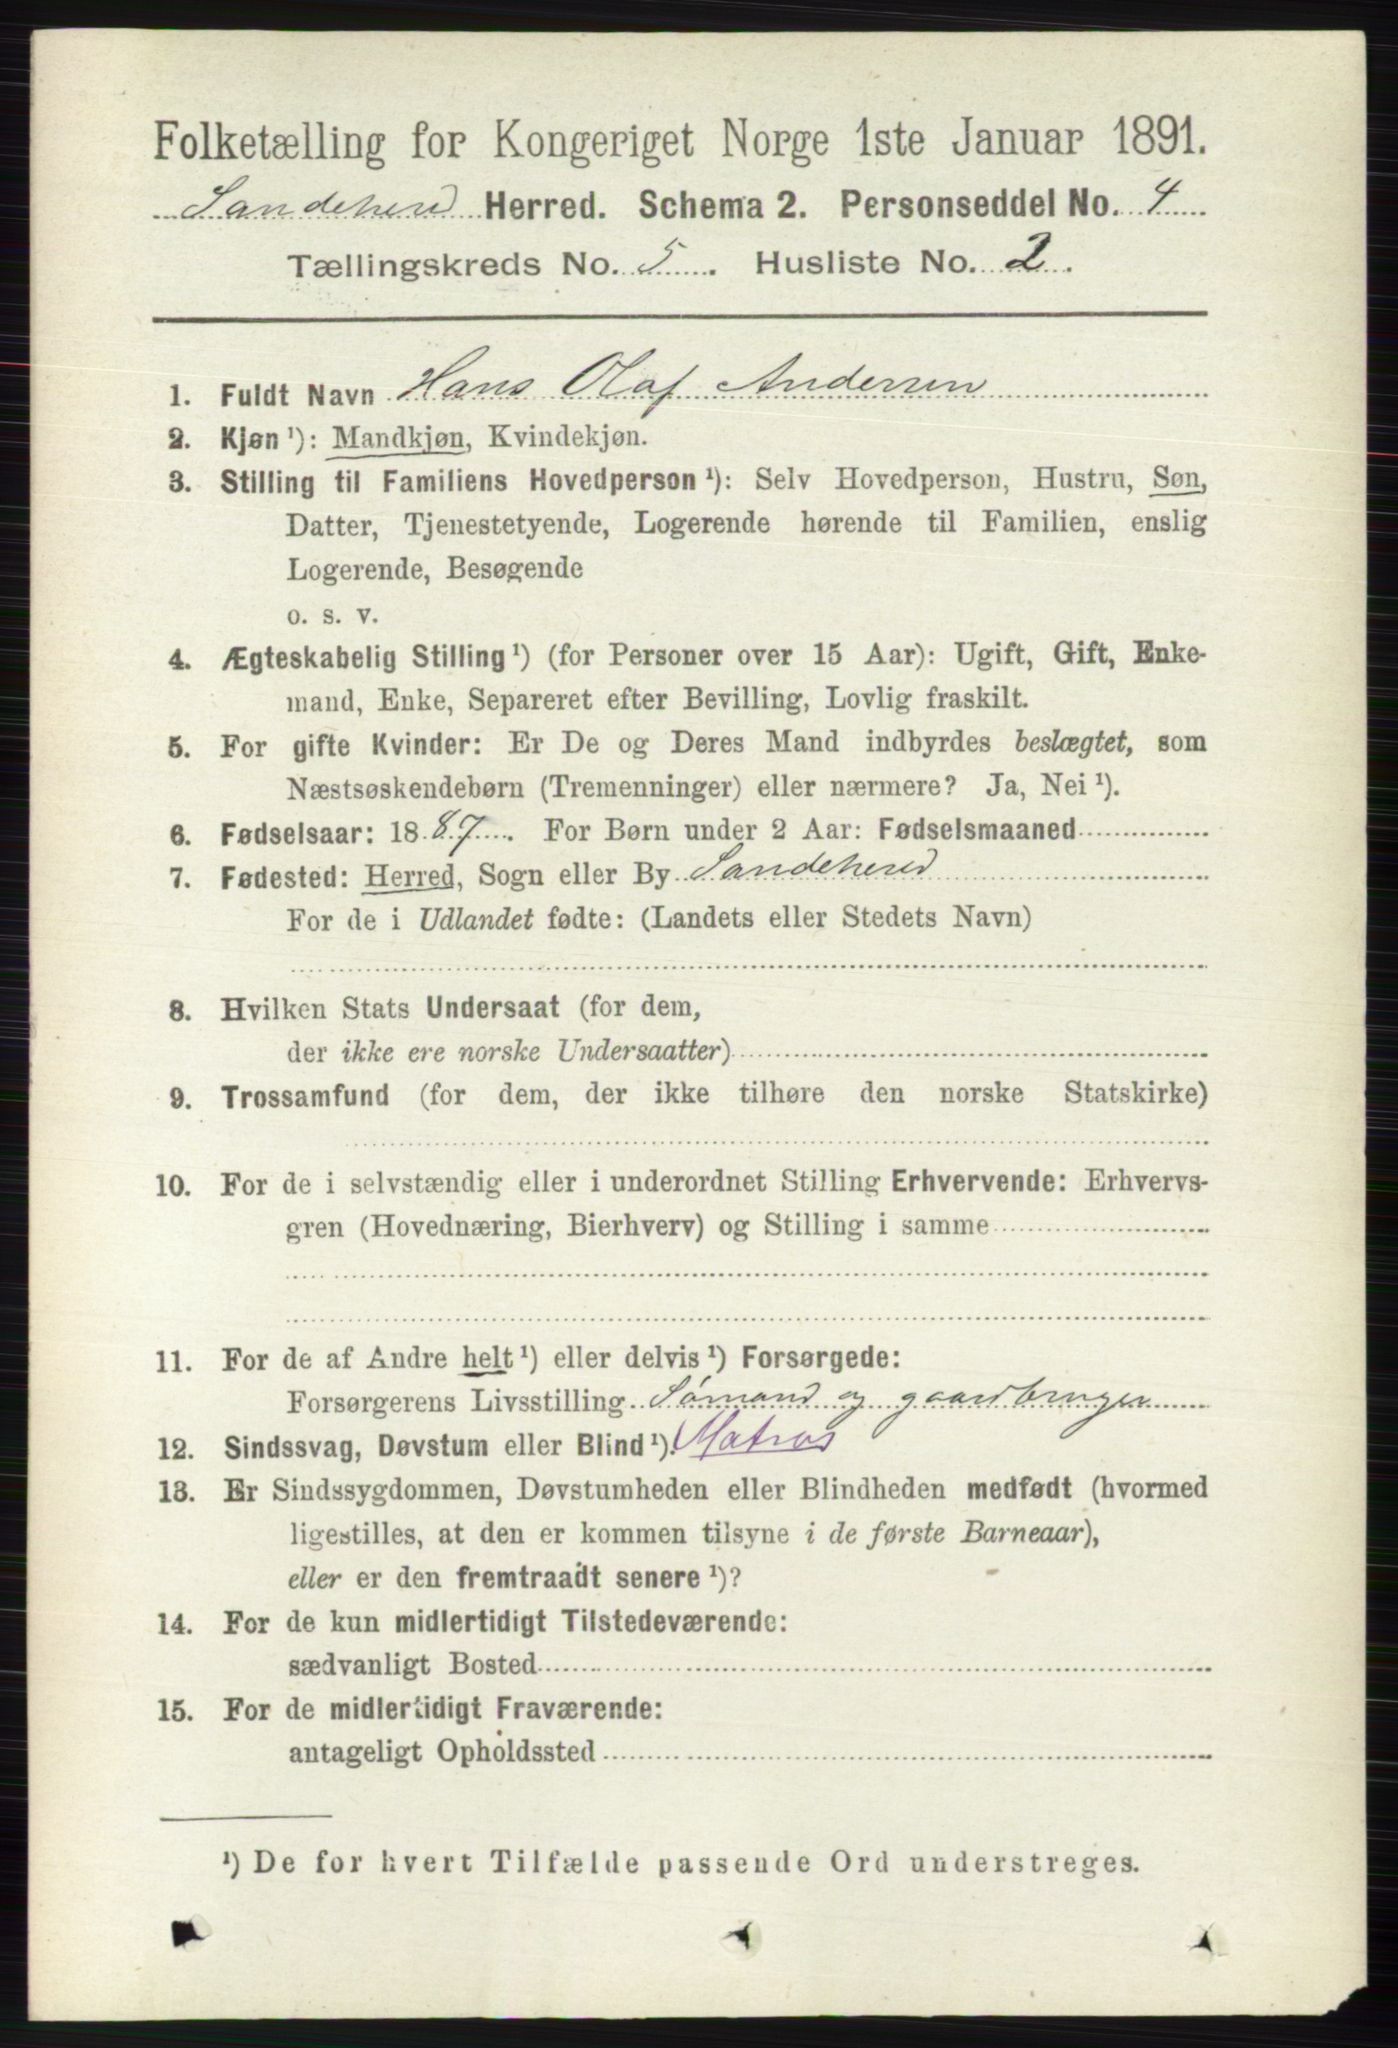 Folketælling for Kongeriget Norge 1ste Januar 1891.
Sandeherred Herred. Schema 2. Personseddel No. 4
Tællingskreds No. 5. Husliste No. 2.
1. Fuldt Navn Hans Olaf Andersen
2. Kjøn¹): Mandkjøn, Kvindekjøn.
3. Stilling til Familiens Hovedperson¹): Selv Hovedperson, Hustru, Søn,
Datter, Tjenestetyende, Logerende hørende til Familien, enslig
Logerende, Besøgende
o. s. v.
4. Ægteskabelig Stilling¹) (for Personer over 15 Aar): Ugift, Gift, Enke-
mand, Enke, Separeret efter Bevilling, Lovlig fraskilt.
5. For gifte Kvinder: Er De og Deres Mand indbyrdes beslægtet, som
Næstsøskendebørn (Tremenninger) eller nærmere? Ja, Nei¹).
6. Fødselsaar: 1887. For Børn under 2 Aar: Fødselsmaaned
7. Fødested: Herred, Sogn eller By Sandeherred
For de i Udlandet fødte: (Landets eller Stedets Navn)
8. Hvilken Stats Undersaat (for dem,
der ikke ere norske Undersaatter)
9. Trossamfund (for dem, der ikke tilhøre den norske Statskirke)
10. For de i selvstændig eller i underordnet Stilling Erhvervende: Erhvervs-
gren (Hovednæring, Bierhverv) og Stilling i samme
11. For de af Andre helt¹) eller delvis¹) Forsørgede:
Forsørgerens Livsstilling Sømand og gaardbruger
12. Sindssvag, Døvstum eller Blind¹). Matros
13. Er Sindssygdommen, Døvstumheden eller Blindheden medfødt (hvormed
ligestilles, at den er kommen tilsyne i de første Barneaar),
eller er den fremtraadt senere¹)?
14. For de kun midlertidigt Tilstedeværende:
sædvanligt Bosted
15. For de midlertidigt Fraværende:
antageligt Opholdssted
¹) De for hvert Tilfælde passende Ord understreges.